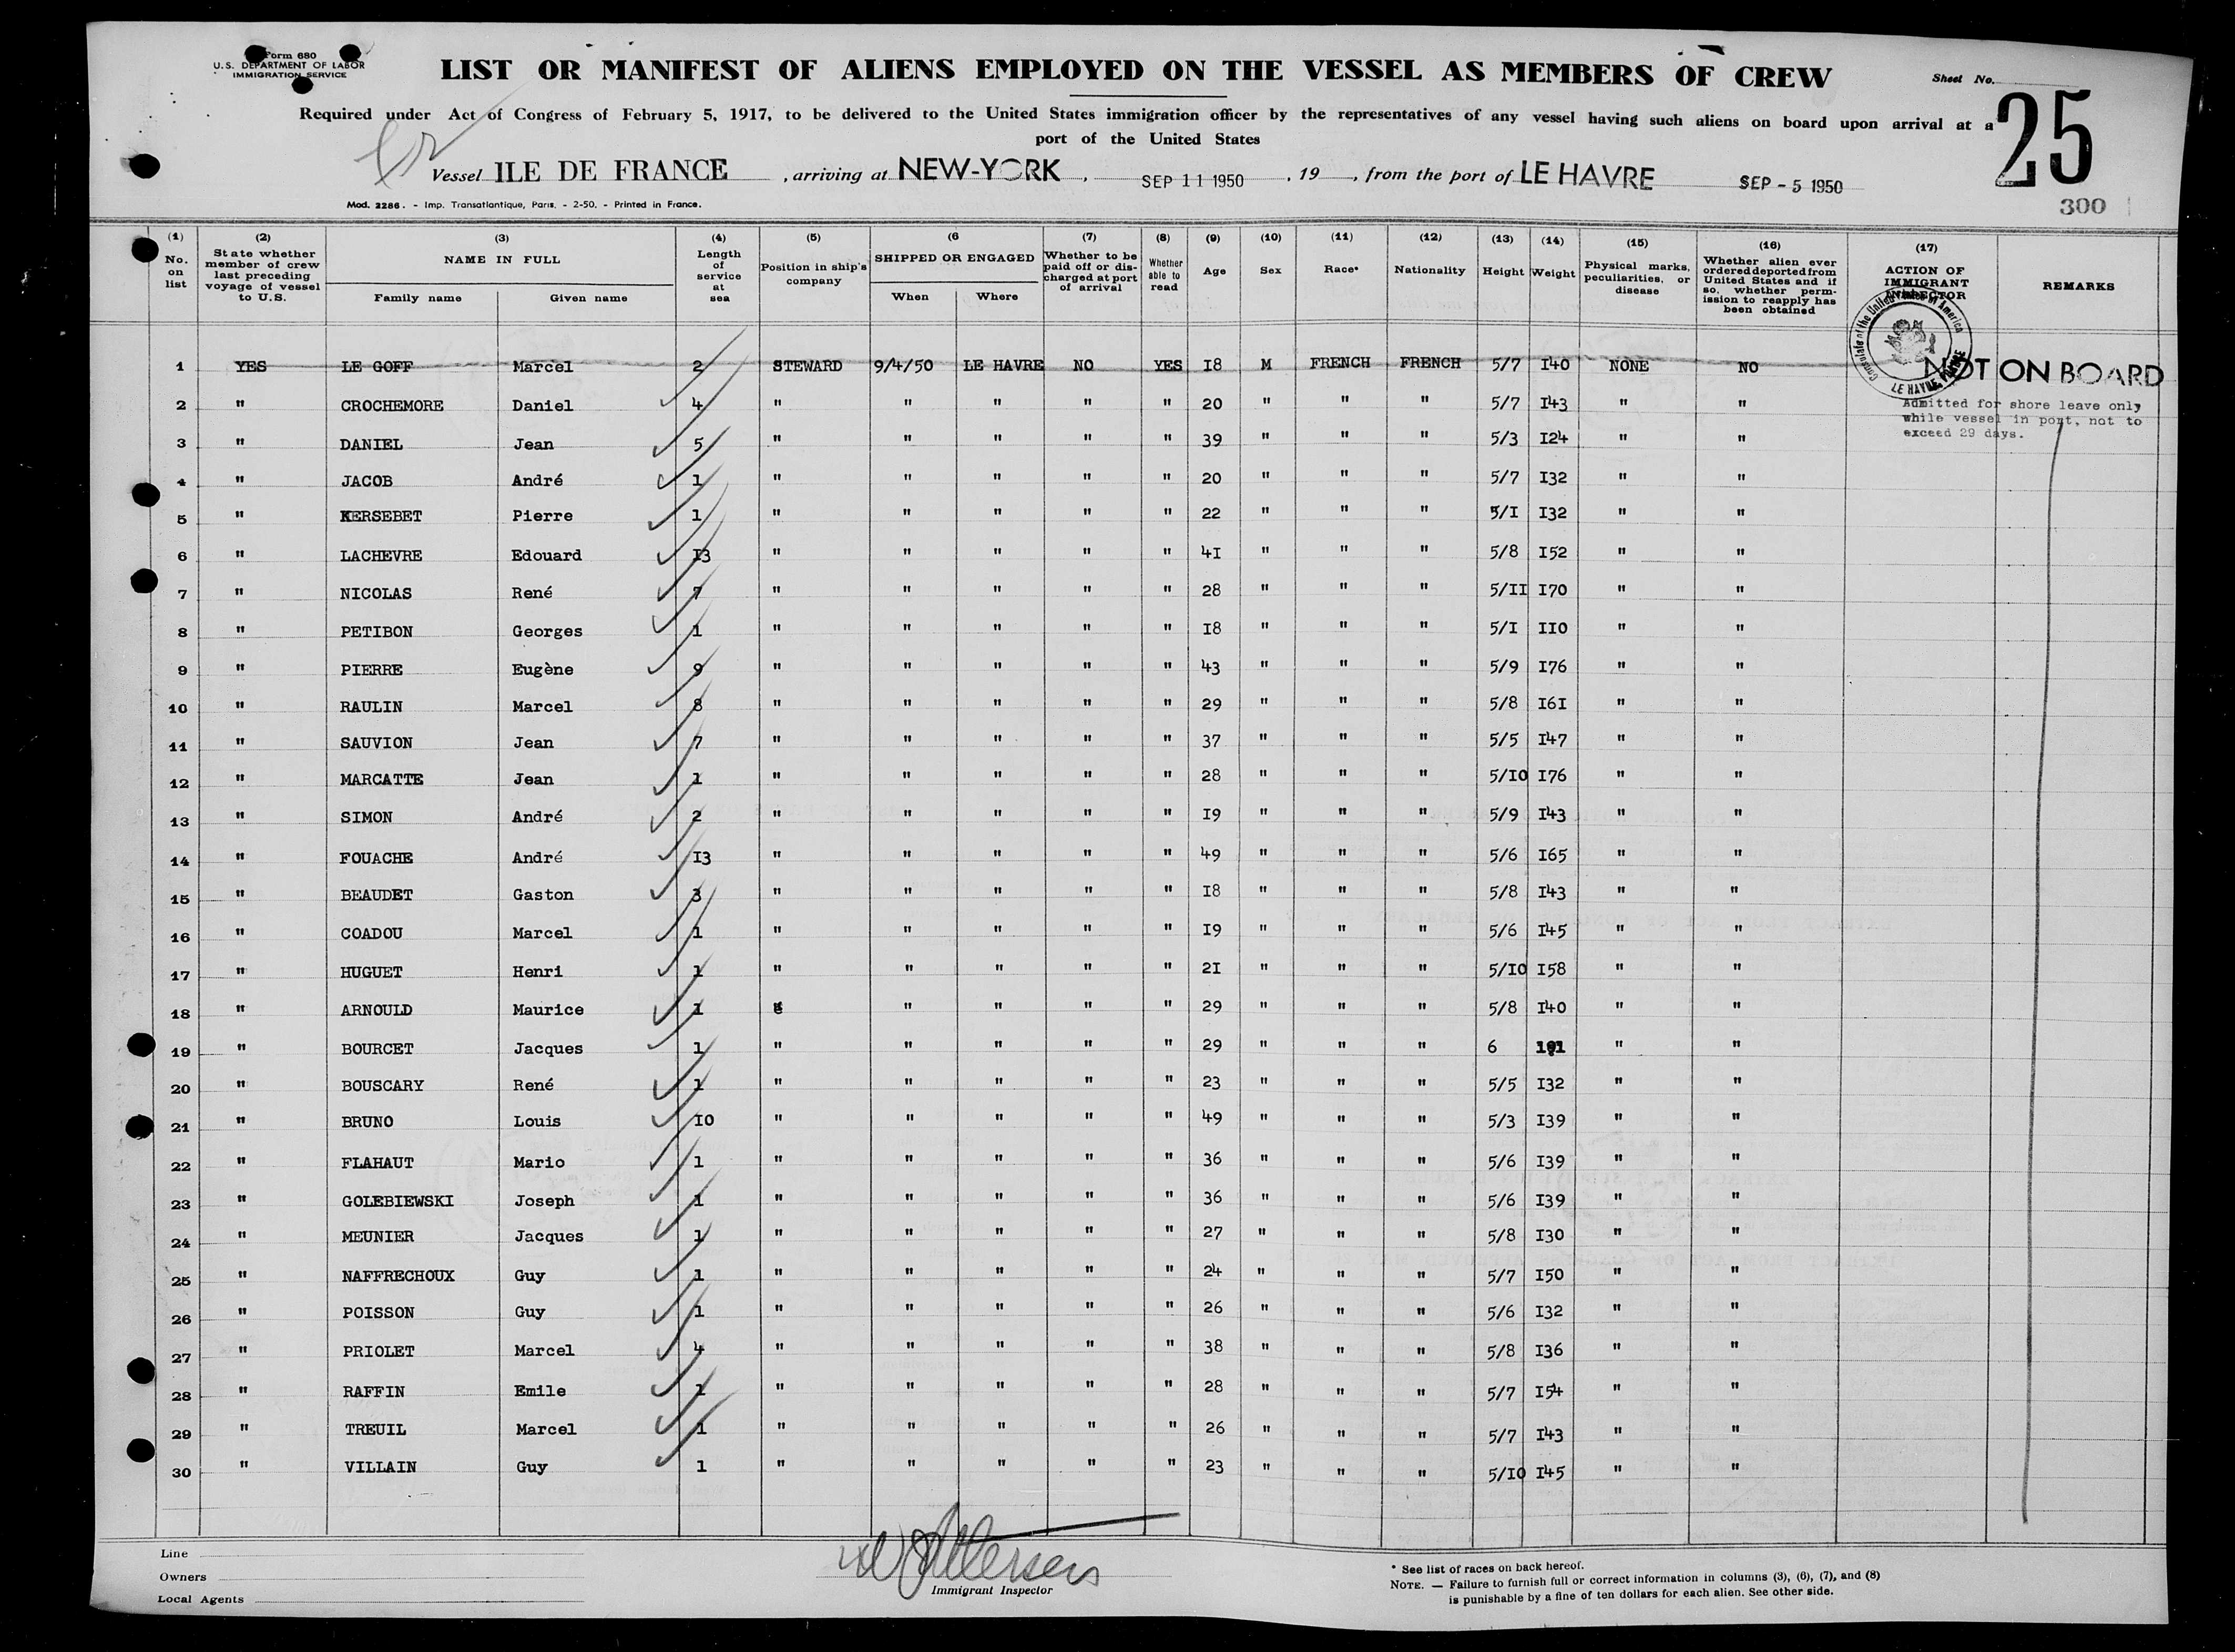 Form 680
U.S. DEPARTMENT OF LABOR
IMMIGRATION SERVICE
LIST OR MANIFEST OF ALIENS EMPLOYED ON THE VESSEL AS MEMBERS OF CREW
Sheet No.
25
300
Required under Act of Congress of February 5, 1917, to be delivered to the United States immigration officer by the representatives of any vessel having such aliens on board upon arrival at a
port of the United States
Vessel ILE DE FRANCE , arriving at NEW-YORK , SEP 11 1950 , 19 , from the port of LE HAVRE SEP - 5 1950
Mod. 2286. - Imp. Transatlantique, Paris. - 2-50. - Printed in France.
(1) No. on list
(2) State whether member of crew last preceding voyage of vessel to U.S.
(3) NAME IN FULL Family name Given name
(4) Length of service at sea
(5) Position in ship's company
(6 SHIPPED OR ENGAGED When Where
(7) Whether to be paid off or discharged at port of arrival
(8) Whether able to read
(9) Age
(10) Sex
(11) Race*
(12) Nationality
(13) Height
(14) Weight
(15) Physical marks, peculiarities, or disease
(16) Whether alien ever ordered deported from United States and if so, whether permission to reapply has been obtained
(17) ACTION OF IMMIGRANT INSPECTOR
REMARKS
Consulate of the United States of America LE HAVRE, FRANCE
1 YES LE GOFF Marcel 2 STEWARD 9/4/50 LE HAVRE NO YES 18 M FRENCH FRENCH 5/7 140 NONE NO NOT ON BOARD
2 " CROCHEMORE Daniel 4 " " " " " 20 " " " 5/7 143 " "
Admitted for shore leave only
while vessel in port, not to
exceed 29 days.
3 " DANIEL Jean 5 " " " " " 39 " " " 5/3 124 " "
4 " JACOB André 1 " " " " " 20 " " " 5/7 132 " "
5 " KERSEBET Pierre 1 " " " " " 22 " " " 5/1 132 " "
6 " LACHEVRE Edouard 13 " " " " " 41 " " " 5/8 152 " "
7 " NICOLAS René 7 " " " " " 28 " " " 5/11 170 " "
8 " PETIBON Georges 1 " " " " " 18 " " " 5/1 110 " "
9 " PIERRE Eugène 9 " " " " " 43 " " " 5/9 176 " "
10 " RAULIN Marcel 8 " " " " " 29 " " " 5/8 161 " "
11 " SAUVION Jean 7 " " " " " 37 " " " 5/5 147 " "
12 " MARCATTE Jean 1 " " " " " 28 " " " 5/10 176 " "
13 " SIMON André 2 " " " " " 19 " " " 5/9 143 " "
14 " FOUACHE André 13 " " " " " 49 " " " 5/6 165 " "
15 " BEAUDET Gaston 3 " " " " " 18 " " " 5/8 143 " "
16 " COADOU Marcel 1 " " " " " 19 " " " 5/6 145 " "
17 " HUGUET Henri 1 " " " " " 21 " " " 5/10 158 " "
18 " ARNOULD Maurice 1 " " " " 29 " " " 5/8 140 " "
19 " BOURCET Jacques 1 " " " " " 29 " " " 6 191 " "
20 " BOUSCARY René 1 " " " " " 23 " " " 5/5 132 " "
21 " BRUNO Louis 10 " " " " " 49 " " " 5/3 139 " "
22 " FLAHAUT Mario 1 " " " " " 36 " " " 5/6 139 " "
23 " GOLEBIEWSKI Joseph 1 " " " " " 36 " " " 5/6 139 " "
24 " MEUNIER Jacques 1 " " " " " 27 " " " 5/8 130 " "
25 " NAFFRECHOUX Guy 1 " " " " " 24 " " " 5/7 150 " "
26 " POISSON Guy 1 " " " " " 26 " " " 5/6 132 " "
27 " PRIOLET Marcel 4 " " " " " 38 " " " 5/8 136 " "
28 " RAFFIN Emile 1 " " " " " 28 " " " 5/7 154 " "
29 " TREUIL Marcel 1 " " " " " 26 " " " 5/7 143 " "
30 " VILLAIN Guy 1 " " " " " 23 " " " 5/10 145 " "
Line
Owners
Local Agents
Immigrant Inspector
* See list of races on back hereof.
NOTE. — Failure to furnish full or correct information in columns (3), (6), (7), and (8)
is punishable by a fine of ten dollars for each alien. See other side.